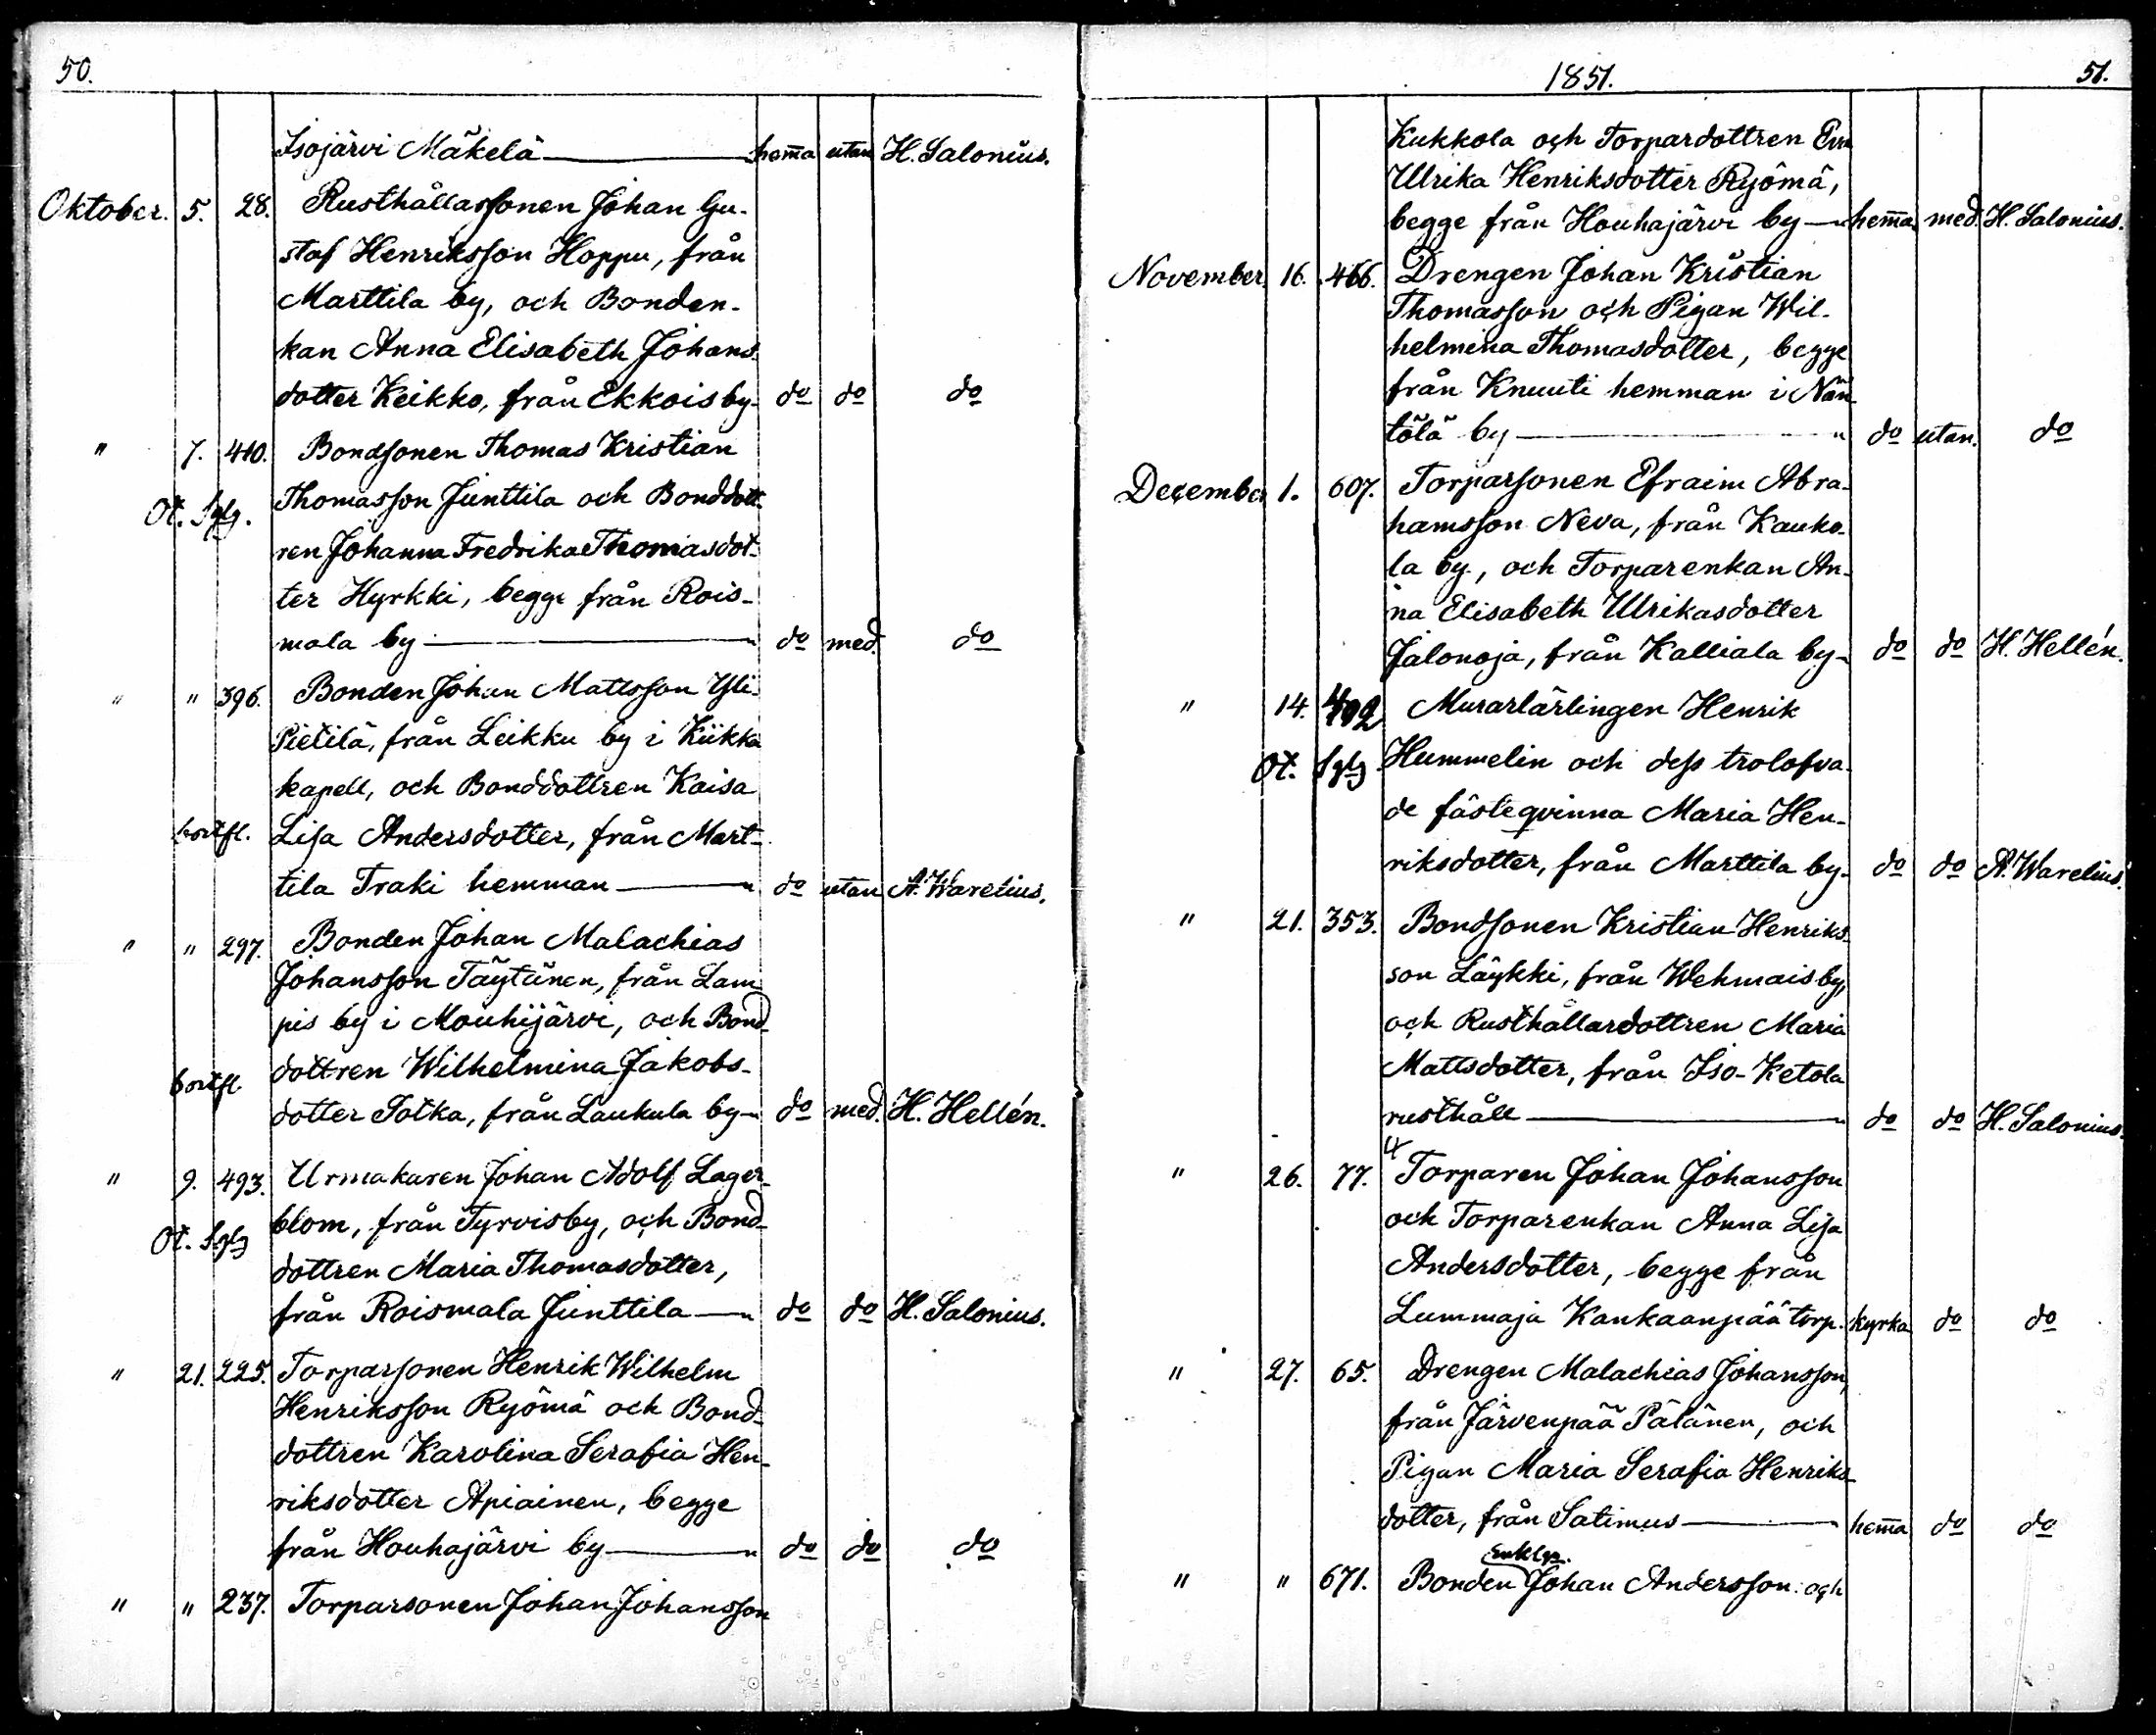 50.
Isojärvi Mäkelä — hem̄a utan H. Salonius.
Oktober. 5. 28. Rusthållarsonen Johan Gu-
staf Henriksson Hoppu, från
Marttila by, och Bonden-
kan Anna Elisabeth Johans
dotter Keikko, från Ekkois by- do do do
" 7. 410. Bondsonen Thomas Kristian
Ot. Sglg. Thomasson Junttila och Bonddott-
ren Johanna Fredrika Thomasdot-
ter Hyrkki, begge från Rois-
mala by — do med. do
" " 396. Bonden Johan Mattsson Yli-
Pietilä, från Leikku by i Kiikka
kapell, och Bonddottren Kaisa
bortfl. Lisa Andersdotter, från Mart-
tila Traki hemman — do utan A. Warelius.
" " 297. Bonden Johan Malachias
Johansson Täytänen, från Lam
pis by i Mouhijärvi, och Bond
bortfl. dottren Wilhelmina Jakobs-
dotter Totka, från Laukula by — do med. H. Hellén.
" 9. 493. Urmakaren Johan Adolf Lager-
Ot. Sglg blom, från Tyrvis by, och Bond-
dottren Maria Thomasdotter,
från Roismala Junttila — do do H. Salonius.
" 21. 225. Torparsonen Henrik Wilhelm
Henriksson Ryömä och Bond-
dottren Karolina Serafia Hen-
riksdotter Apiainen, begge
från Houhajärvi by — do do do
" " 237. Torparsonen Johan Johansson
1851. 51.
Kukkola och Torpardottren Eva
Ulrika Henriksdotter Ryömä,
begge från Houhajärvi by — hem̄a med. H. Salonius.
November. 16. 466. Drengen Johan Kristian
Thomasson och Pigan Wil-
helmina Thomasdotter, begge
från Knuuti hemman i Nän-
tölä by — do utan. do
December 1. 607. Torparsonen Efraim Abra-
hamsson Neva, från Kauko-
la by, och Torparenkan An-
na Elisabeth Ulrikasdotter
Jalonoja, från Kalliala by- do do H. Hellén.
" 14. 492 Murarlärlingen Henrik
Ot. Sglg. Hummelin och dess trolofva-
de fästeqvinna Maria Hen-
riksdotter, från Marttila by- do do A. Warelius.
" 21. 353. Bondsonen Kristian Henriks-
son Läykki, från Wehmais by,
och Rusthållardottren Maria
Mattsdotter, från Iso-Ketola
rusthåll — do do H. Salonius.
" 26. 77. Torparen Johan Johansson
och Torparenkan Anna Lisa
Andersdotter, begge från
Lummaja Kankaanpää torp. kyrka do do
" 27. 65. Drengen Malachias Johansson,
från Järvenpää Pälänen, och
Pigan Maria Serafia Henriks-
dotter, från Satimus — hem̄a do do
Enklgn.
" " 671. Bonden Johan Andersson och